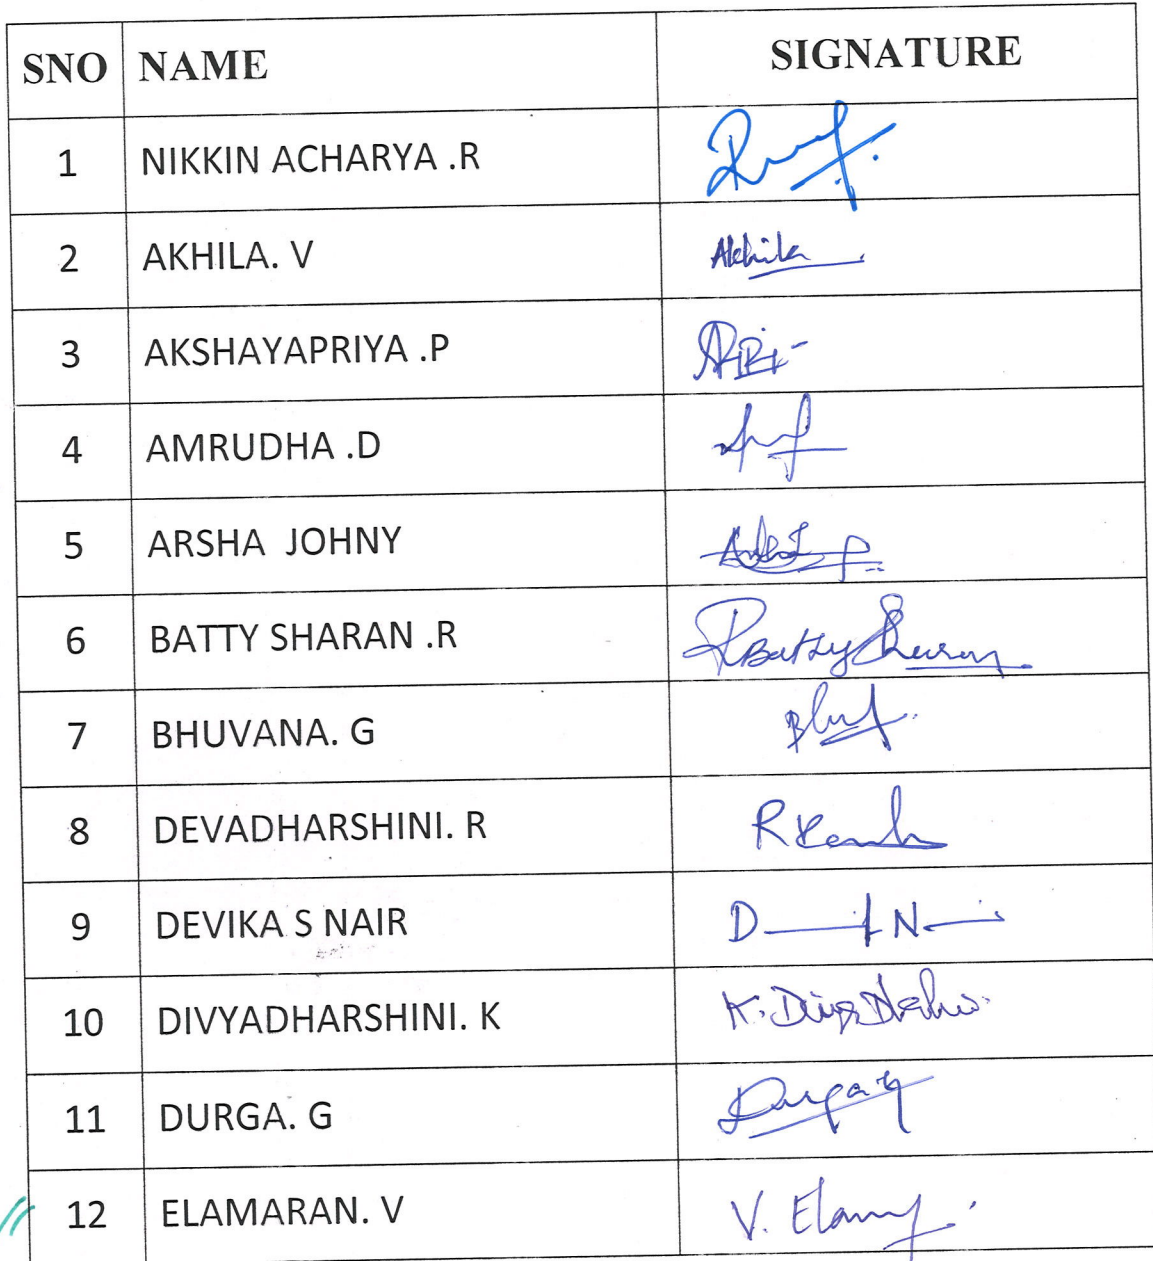 SNO NAME SIGNATURE
1 NIKKIN ACHARYA .R
2 AKHILA. V Akhila
3 AKSHAYAPRIYA .P
4 AMRUDHA .D
5 ARSHA JOHNY
6 BATTY SHARAN .R R Batty Sharan
7 BHUVANA. G
8 DEVADHARSHINI. R
9 DEVIKA S NAIR
10 DIVYADHARSHINI. K
11 DURGA. G Durga G
12 ELAMARAN. V